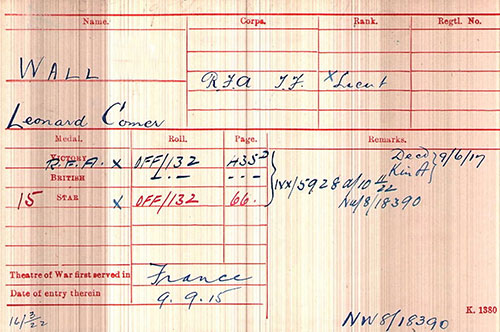 Name. Corps. Rank. Regtl. No.
WALL
R.F.A T.F. x Lieut
Leonard Comer
Medal. Roll. Page. Remarks.
VICTORY R.F.A. x OFF/132 A35D Decd 9/6/17
BRITISH 1.- --- Kin A
IVX/5928 a/10 11/22
15 STAR x OFF/132 66. NW/8/18390
Theatre of War first served in France
Date of entry therein 9.9.15
16/3/22 NW8/18390
K. 1380